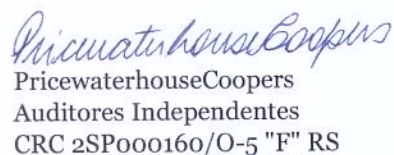 PricewaterhouseCoopers
PricewaterhouseCoopers
Auditores Independentes
CRC 2SP000160/O-5 "F" RS